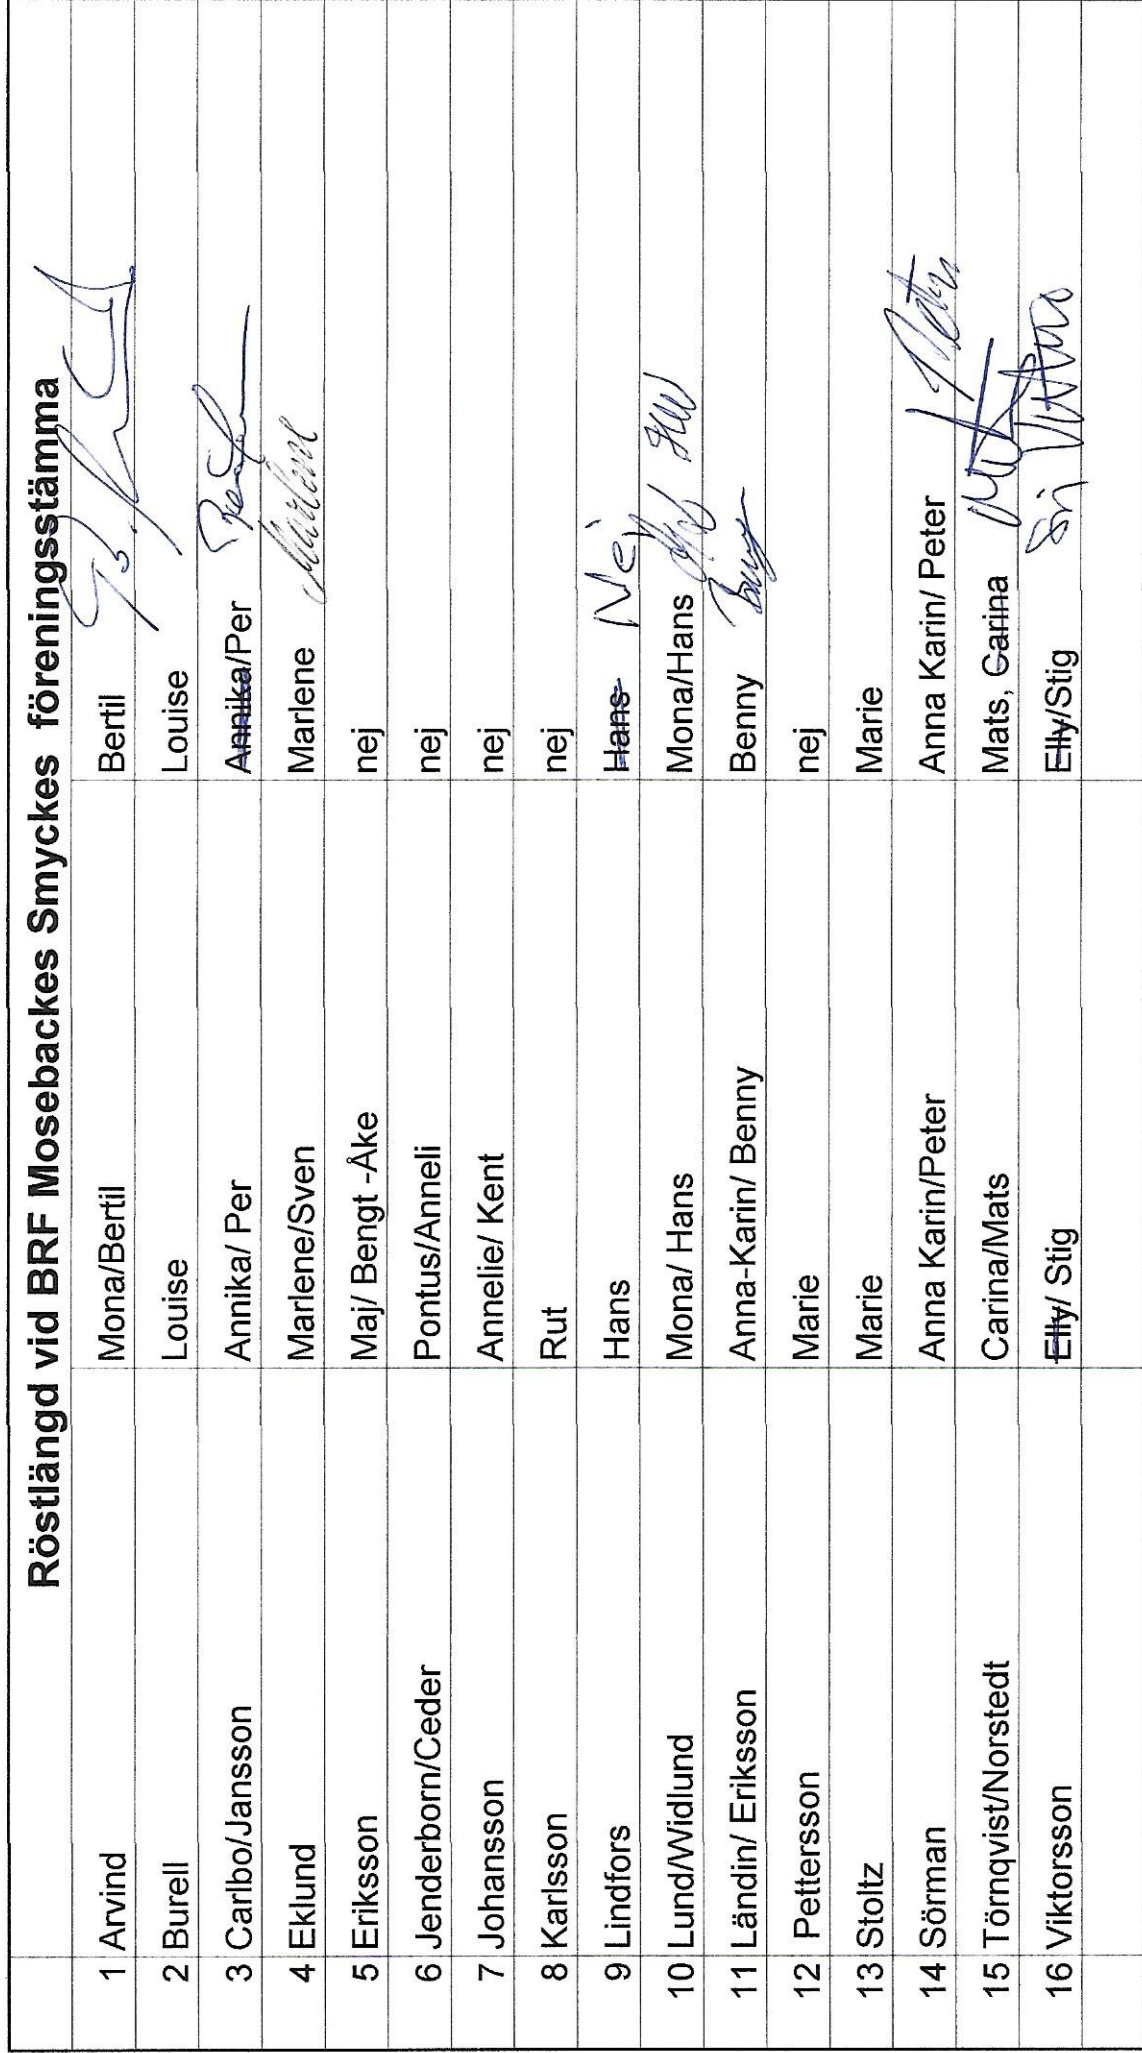 Röstlängd vid BRF Mosebackes Smyckes föreningsstämma
1 Arvind Mona/Bertil Bertil
2 Burell Louise Louise
3 Carlbo/Jansson Annika/ Per Annika/Per
4 Eklund Marlene/Sven Marlene Marlene
5 Eriksson Maj/ Bengt -Åke nej
6 Jenderborn/Ceder Pontus/Anneli nej
7 Johansson Annelie/ Kent nej
8 Karlsson Rut nej
9 Lindfors Hans Hans Nej
10 Lund/Widlund Mona/ Hans Mona/Hans
11 Ländin/ Eriksson Anna-Karin/ Benny Benny Benny
12 Pettersson Marie nej
13 Stoltz Marie Marie
14 Sörman Anna Karin/Peter Anna Karin/ Peter Peter
15 Törnqvist/Norstedt Carina/Mats Mats, Carina
16 Viktorsson Elly/ Stig Elly/Stig